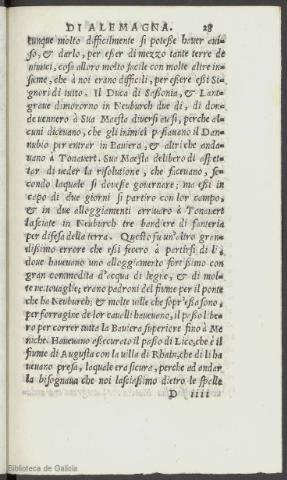 DI ALEMAGNA. 28
tunque molto difficilmente si potesse hauer aui-
so, & darlo, per esser di mezzo tante terre de
nimici, cosa alloro molto facile con molte altre in-
sieme, che à noi erano difficili, per essere essi Si-
gnori di tutto. Il Duca di Sassonia, & Lant-
graue dimororno in Neuburch due di, di don-
de vennero à Sua Maestà diuersi auisi, perche al-
cuni diceuano, che gli inimici passauano il Dan-
nubio per entrar in Bauiera, & altri che anda-
uano à Tonauert. Sua Maestà delibero di aspet-
tar di ueder la risolutione, che faceuano, se-
condo laquale si douesse gouernare; ma essi in
capo di due giorni si partiro con lor campo,
& in due alloggiamenti arriuaro à Tonauert
lasciate in Neuburch tre bandiere di fanteria
per difesa della terra. Questo fu un'altro gran-
dissimo errore che essi fecero à partirsi di là,
doue haueuano uno alloggiamento fortissimo con
gran commodita d'acqua di legne, & di mol-
te vettouaglie; erano padroni del fiume per il ponte
che ha Neuburch, & molte uille che sopr'essa sono,
per forragine de lor caualli haueuano, il passo libe-
ro per correr tutta la Bauiera superiore fino à Mo-
niche. Haueuano essecurato il passo di Lico, che è il
fiume di Augusta con la uilla di Rhain, che di li ha
ueuano presa, laquale era sicura, perche ad andar
la bisognaua che noi lasciassimo dietro le spalle
D iiii
Biblioteca de Galicia